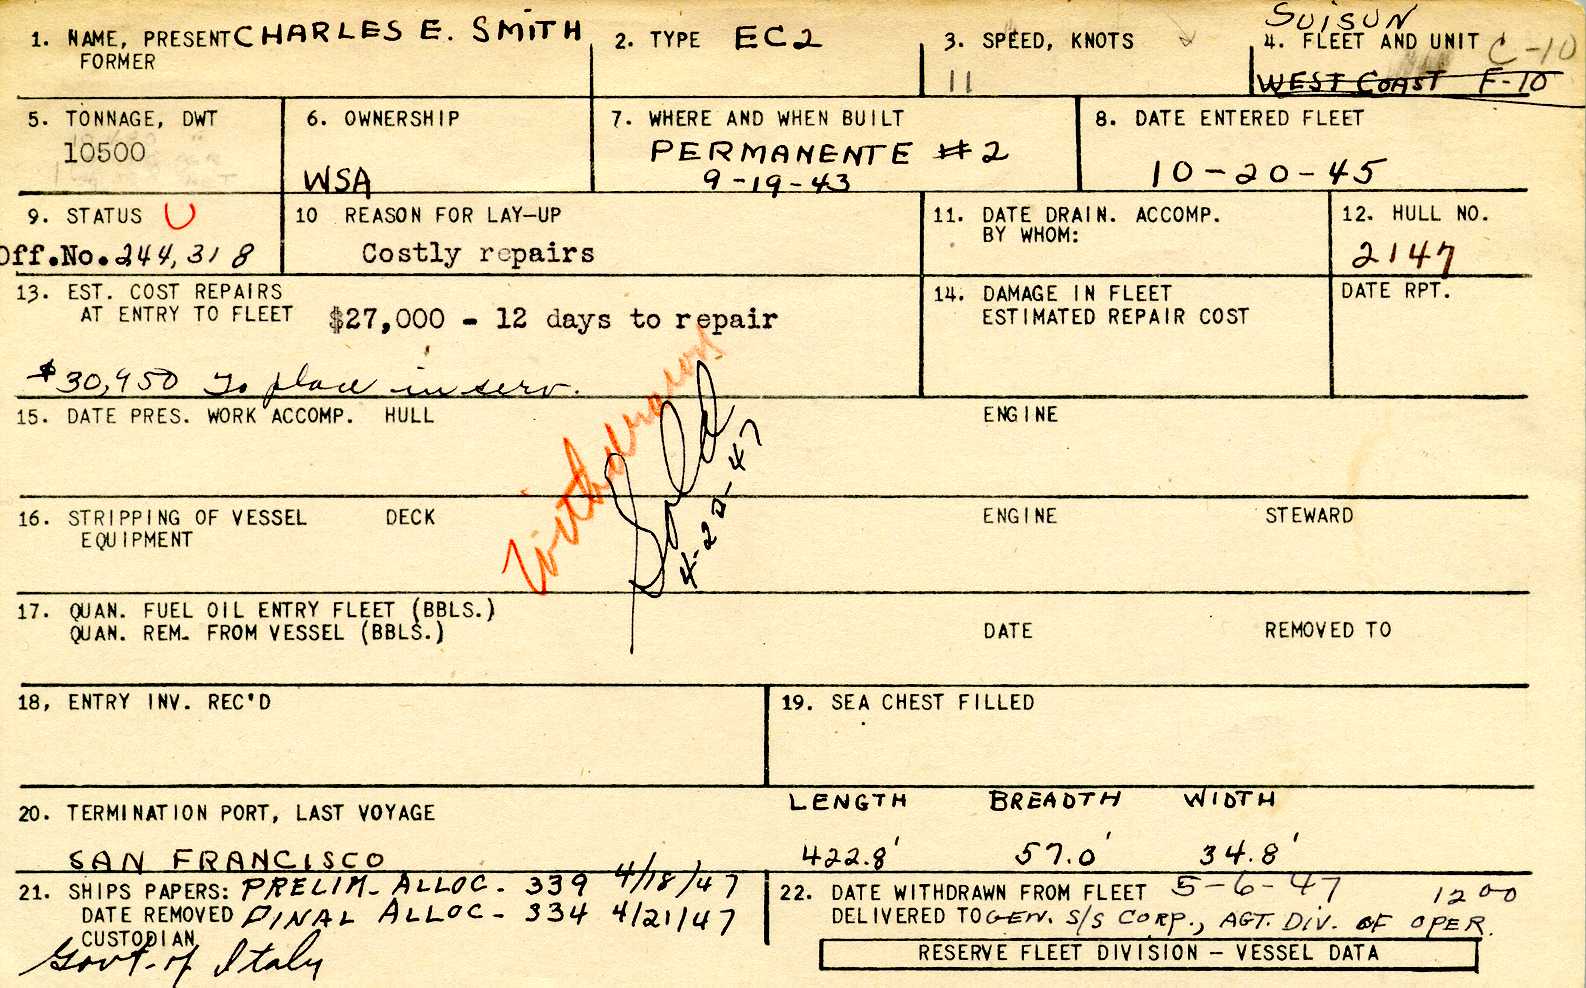 1. NAME, PRESENT CHARLES E. SMITH
FORMER
2. TYPE EC2
3. SPEED, KNOTS
11
SUISUN
4. FLEET AND UNIT C-10
WEST COAST F-10
5. TONNAGE, DWT
10500
6. OWNERSHIP
WSA
7. WHERE AND WHEN BUILT
PERMANENTE #2
9-19-43
8. DATE ENTERED FLEET
10-20-45
9. STATUS U
Off.No. 244,318
10 REASON FOR LAY-UP
Costly repairs
11. DATE DRAIN. ACCOMP.
BY WHOM:
12. HULL NO.
2147
13. EST. COST REPAIRS
AT ENTRY TO FLEET $27,000 - 12 days to repair
$30,950 to place in serv.
14. DAMAGE IN FLEET
ESTIMATED REPAIR COST
DATE RPT.
15. DATE PRES. WORK ACCOMP. HULL ENGINE
Withdrawn
Sold
4-20-47
16. STRIPPING OF VESSEL DECK ENGINE STEWARD
EQUIPMENT
17. QUAN. FUEL OIL ENTRY FLEET (BBLS.)
QUAN. REM. FROM VESSEL (BBLS.) DATE REMOVED TO
18, ENTRY INV. REC'D
19. SEA CHEST FILLED
20. TERMINATION PORT, LAST VOYAGE
SAN FRANCISCO
LENGTH BREADTH WIDTH
422.8' 57.0' 34.8'
21. SHIPS PAPERS: PRELIM. ALLOC. - 339 4/18/47
DATE REMOVED FINAL ALLOC - 334 4/21/47
CUSTODIAN
Govt. of Italy
22. DATE WITHDRAWN FROM FLEET 5-6-47 1200
DELIVERED TO GEN. S/S CORP., AGT. DIV. OF OPER.
RESERVE FLEET DIVISION - VESSEL DATA